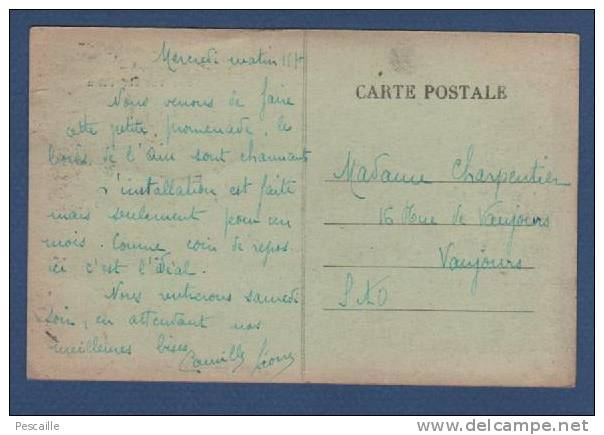 Mercredi matin
Nous venons de faire
cette petite promenade, les
bords de l'Ain sont charmants
L'installation est faite
mais seulement pour un
mois. Comme coin de repos
ici c'est l'idéal.
Nous rentrerons samedi
soir, en attendant nos
meilleures bises
Camille
CARTE POSTALE
Madame Charpentier
16 Rue de Vaujours
Vaujours
S & O
Pescaille
www.delcampe.net